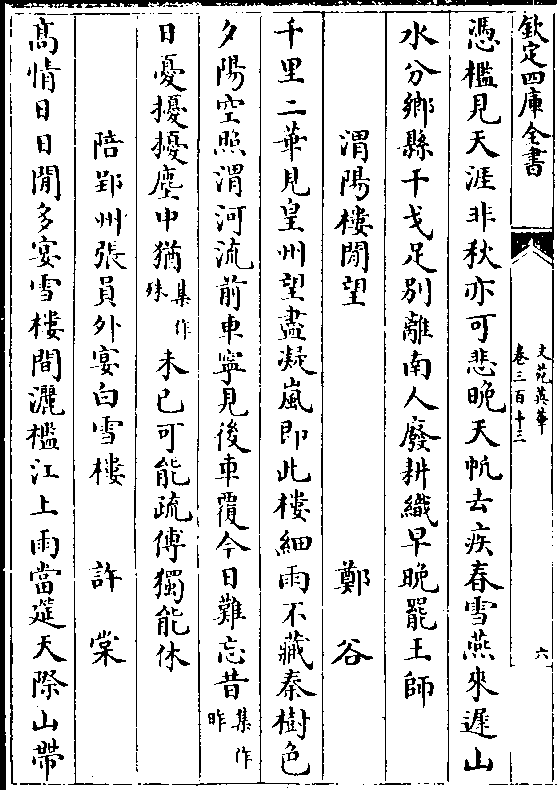 欽定四庫全書
文苑英華
卷三百十三
六
憑檻見天涯非秋亦可悲晚天帆去疾春雪燕來遲山
水分鄉縣干戈足別離南人廢耕織早晚罷王師
渭陽樓閒望 鄭谷
千里二華見皇州望盡凝嵐即此樓細雨不藏秦樹色
夕陽空照渭河流前車寧見後車覆今日難忘昔集作昨
日憂擾擾塵中猶集作殊未已可能疏傅獨能休
陪郢州張員外宴白雪樓 許棠
高情日日閒多宴雪樓間灑檻江上雨當筵天際山帶